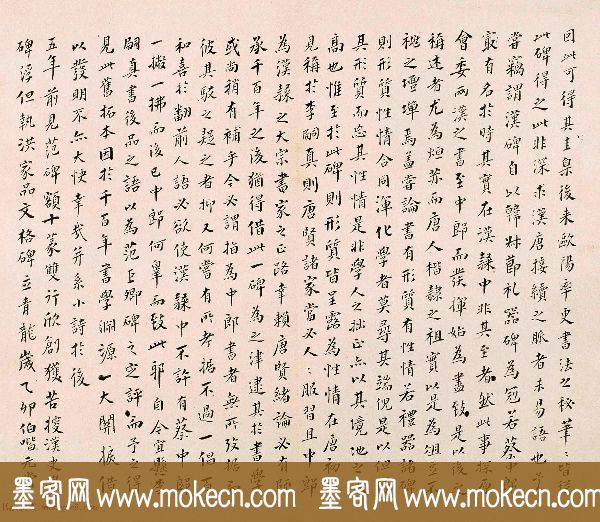 因此可得其圭臬後來歐陽率更書法之秘筆筆皆從
此碑得之此非深求漢唐接續之脈者未易語也予
嘗竊謂漢碑自以韓敕節禮器碑為冠若蔡中郎
寂有名於時其實在漢隸中非其至者然此事探原
會委兩漢之書至中郎而發揮始為盡致是以後之
稱述者尤為烜赫而唐人楷隸之祖實以是為俎豆不
祧之壇墠焉蓋嘗論書有形質有性情若禮器諸碑
則形質性情合同渾化學者莫尋其端倪是以但
其形質而忘其性情是非學人之拙正以其境地之
高也惟至於此碑則形質皆呈露為性情在唐初
見稱於李嗣真則唐賢諸家當必人人服習且中郎
為漢隸之大宗書家之正路幸賴唐賢緒論必有師
承千百年之後猶得借此一碑為之津逮其於書學
或尚稍有補乎今必謂指為中郎書者無所攷據
彼其駁之疑之者抑又何嘗有所考據不過一倡百
和喜於翻前人語必欲使漢隸中不許有蔡中郎
一撇一拂而後已中郎何辜而致此耶自今宜懸李
嗣真書後品之語以為范巨卿碑之定評而予之得
見此舊拓本因於千百年書學淵源一大開掖借
以發明不亦大快幸哉并系小詩於後
五年前見范碑額十篆雙行欣創獲苦搜漢史
碑但執洪家品文格碑立青龍歲乙卯伯喈元
墨客网 www.mokecn.com 墨客网 www.mokecn.com